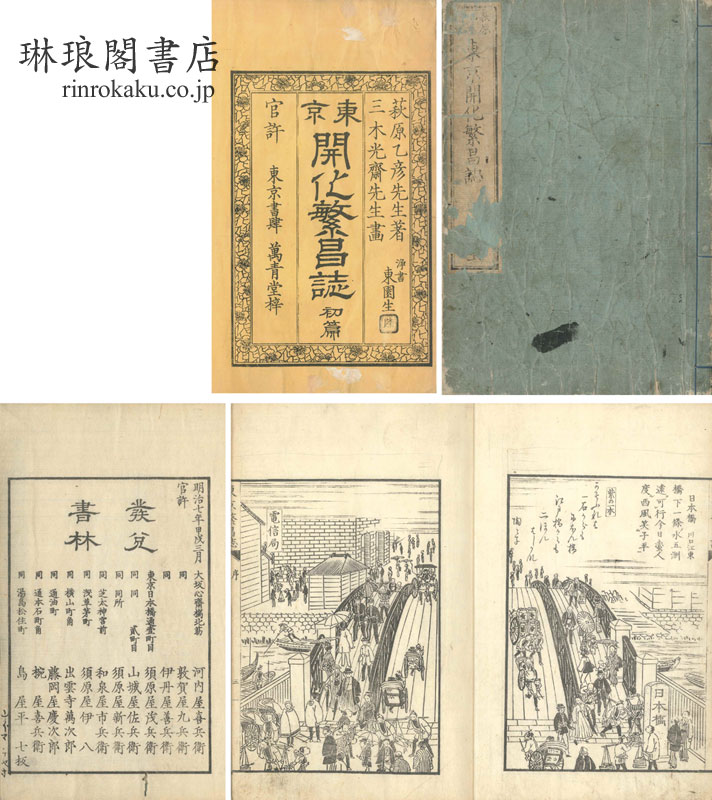 琳琅閣書店
rinrokaku.co.jp
萩原乙彦先生著
三木光齋先生畫
浄書
東園生
東京
開化繁昌誌
初篇
官許
東京書肆 萬青堂梓
東京開化繁昌誌
明治七年甲戌三月
官許
發兌
書林
大坂心齋橋北葛 河内屋喜兵衛
同 敦賀屋九兵衛
同 伊丹屋善兵衛
東京日本橋通壹町目 須原屋茂兵衛
同 同 貳町目 山城屋佐兵衛
同 同所 須原屋新兵衛
同 芝太神宮前 和泉屋市兵衛
同 淺草茅町 須原屋伊八
同 横山町角 出雲寺萬次郎
同 通油町 藤岡屋慶次郎
同 通本石町角 椀屋喜兵衛
同 湯島松住町 島屋平七板
日本橋
橋下一條水五洲
遠可行今日蛮人
度西風英子平
日本橋
電信局